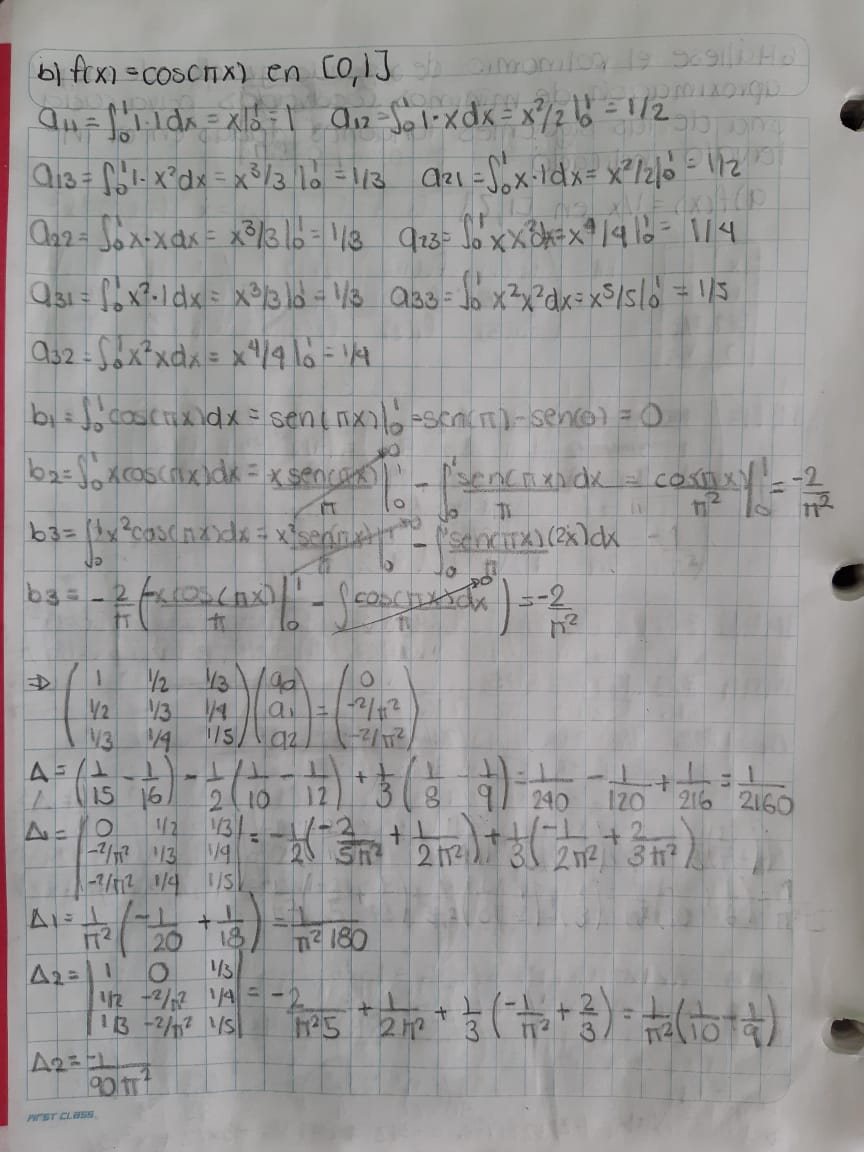 b) f(x) = cos(πx) en [0,1]
a11 = ∫₀¹ 1·1dx = x|₀¹ = 1 a12 = ∫₀¹ 1·xdx = x²/2|₀¹ = 1/2
a13 = ∫₀¹ 1·x²dx = x³/3|₀¹ = 1/3 a21 = ∫₀¹ x·1dx = x²/2|₀¹ = 1/2
a22 = ∫₀¹ x·xdx = x³/3|₀¹ = 1/3 a23 = ∫₀¹ xx²dx = x⁴/4|₀¹ = 1/4
a31 = ∫₀¹ x²·1dx = x³/3|₀¹ = 1/3 a33 = ∫₀¹ x²x²dx = x⁵/5|₀¹ = 1/5
a32 = ∫₀¹ x²xdx = x⁴/4|₀¹ = 1/4
b1 = ∫₀¹ cos(πx)dx = sen(πx)|₀¹ = sen(π) - sen(0) = 0
b2 = ∫₀¹ xcos(πx)dx = x sen(πx)/π|₀¹ - ∫₀¹ sen(πx)/π dx = cos(πx)/π²|₀¹ = -2/π²
b3 = ∫₀¹ x²cos(πx)dx = x²sen(πx)/π|₀¹ - ∫₀¹ sen(πx)/π (2x)dx
b3 = -2/π (-xcos(πx)/π|₀¹ - ∫cos(πx)dx/π) = -2/π²
⇒ (1 1/2 1/3) (a0) (0)
(1/2 1/3 1/4) (a1) = (-2/π²)
(1/3 1/4 1/5) (a2) (-2/π²)
Δ = (1/15 - 1/16) - 1/2 (1/10 - 1/12) + 1/3 (1/8 - 1/9) = 1/240 - 1/120 + 1/216 = 1/2160
Δ1 = |0 1/2 1/3| = -1/2 (-2/5π² + 1/2π²) + 1/3 (-1/2π² + 2/3π²)
|-2/π² 1/3 1/4|
|-2/π² 1/4 1/5|
Δ1 = 1/π² (-1/20 + 1/18) = 1/π²180
Δ2 = |1 0 1/3|
|1/2 -2/π² 1/4| = -2/π²5 + 1/2π² + 1/3 (-1/π² + 2/3) = 1/π² (1/10 - 1/9)
|1/3 -2/π² 1/5|
Δ2 = -1/90π²
FIRST CLASS